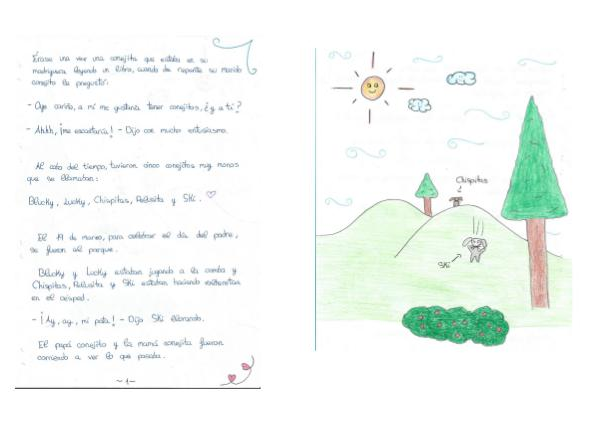 Érase una vez una conejita que estaba en su
madriguera leyendo un libro, cuando de repente su marido
conejito la preguntó:
- Oye cariño, a mí me gustaría tener conejitos, ¿y a tí?
- Ahhh, ¡me encantaría! - Dijo con mucho entusiasmo.
Al cabo del tiempo, tuvieron cinco conejitos muy monos
que se llamaban:
Blucky, Lucky, Chispitas, Pelusita y Ski.
El 19 de marzo, para celebrar el día del padre,
se fueron al parque.
Blucky y Lucky estaban jugando a la comba y
Chispitas, Pelusita y Ski estaban haciendo volteretas
en el césped.
- ¡Ay, ay, mi pata! - Dijo Ski llorando.
El papá conejito y la mamá conejita fueron
corriendo a ver lo que pasaba.
~1~
Chispitas
Ski